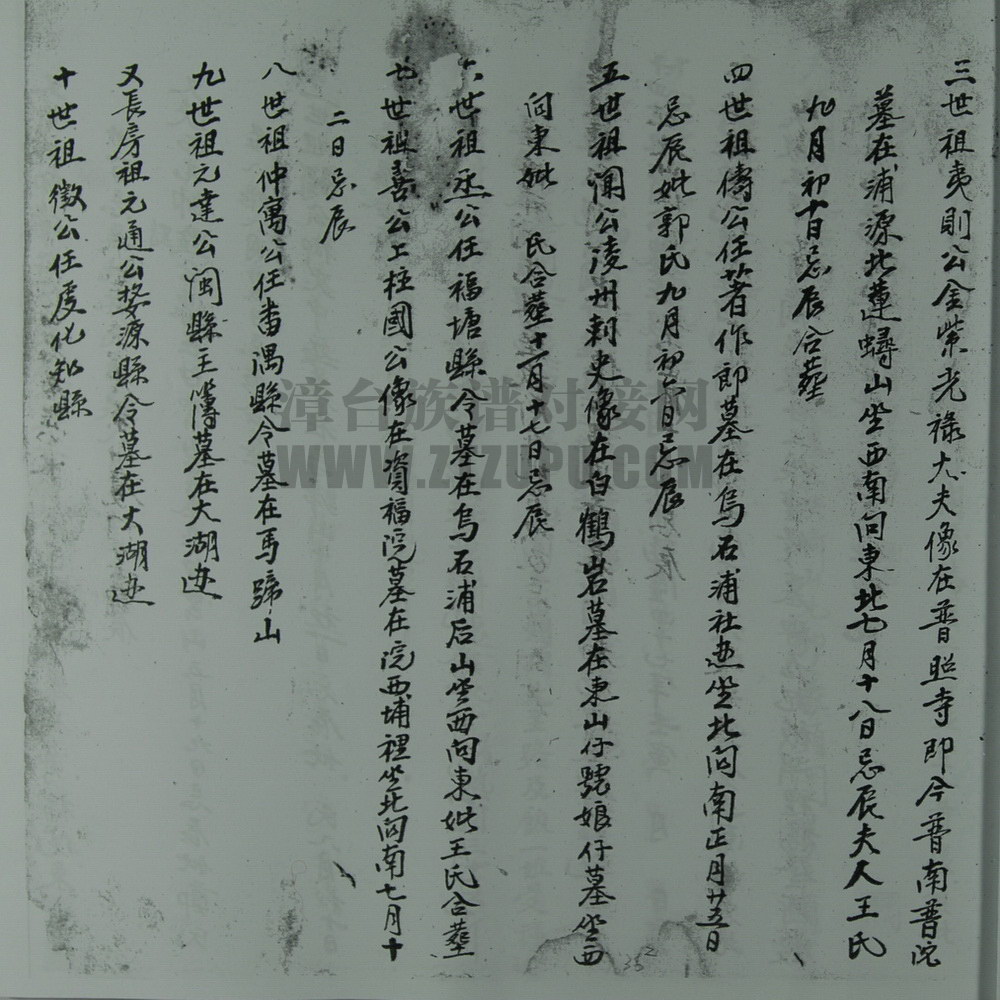 三世祖夷則公金紫光祿大夫像在普照寺即今普南普陀
墓在浦源北蓮蟳山坐西南向東北七月十八日忌辰夫人王氏
九月初十日忌辰合葬
四世祖儔公任著作郎墓在烏石浦社边坐北向南正月廿五日
忌辰妣郭氏九月初六日忌辰
五世祖淍公凌州刺史像在白鶴岩墓在東山仔號娘仔墓坐西
向東妣 氏合葬十一月十七日忌辰
六世祖丞公任福塘縣令墓在烏石浦后山坐西向東妣王氏合葬
七世祖喜公上柱國公像在資福院墓在院西埔裡坐北向南七月十
二日忌辰
八世祖仲寓公任番禺縣令墓在馬蹄山
九世祖元達公閩縣主簿墓在大湖边
又長房祖元通公婺源縣令墓在大湖边
十世祖徵公任虔化知縣
漳台族谱对接网
WWW.ZTZUPU.COM
352